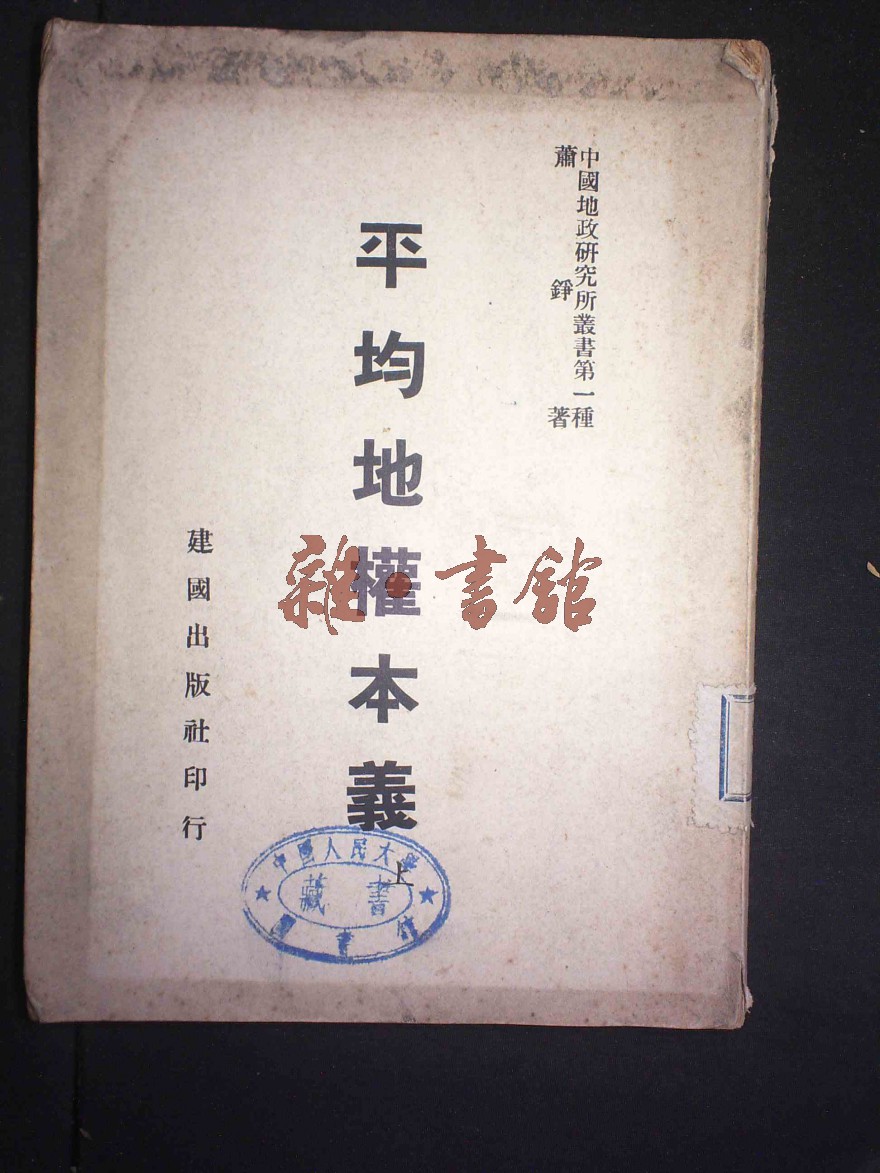 中國地政研究所叢書第一種
蕭錚著
平均地權本義
上
建國出版社印行
雜·書館
中國人民大學
藏書
圖書館